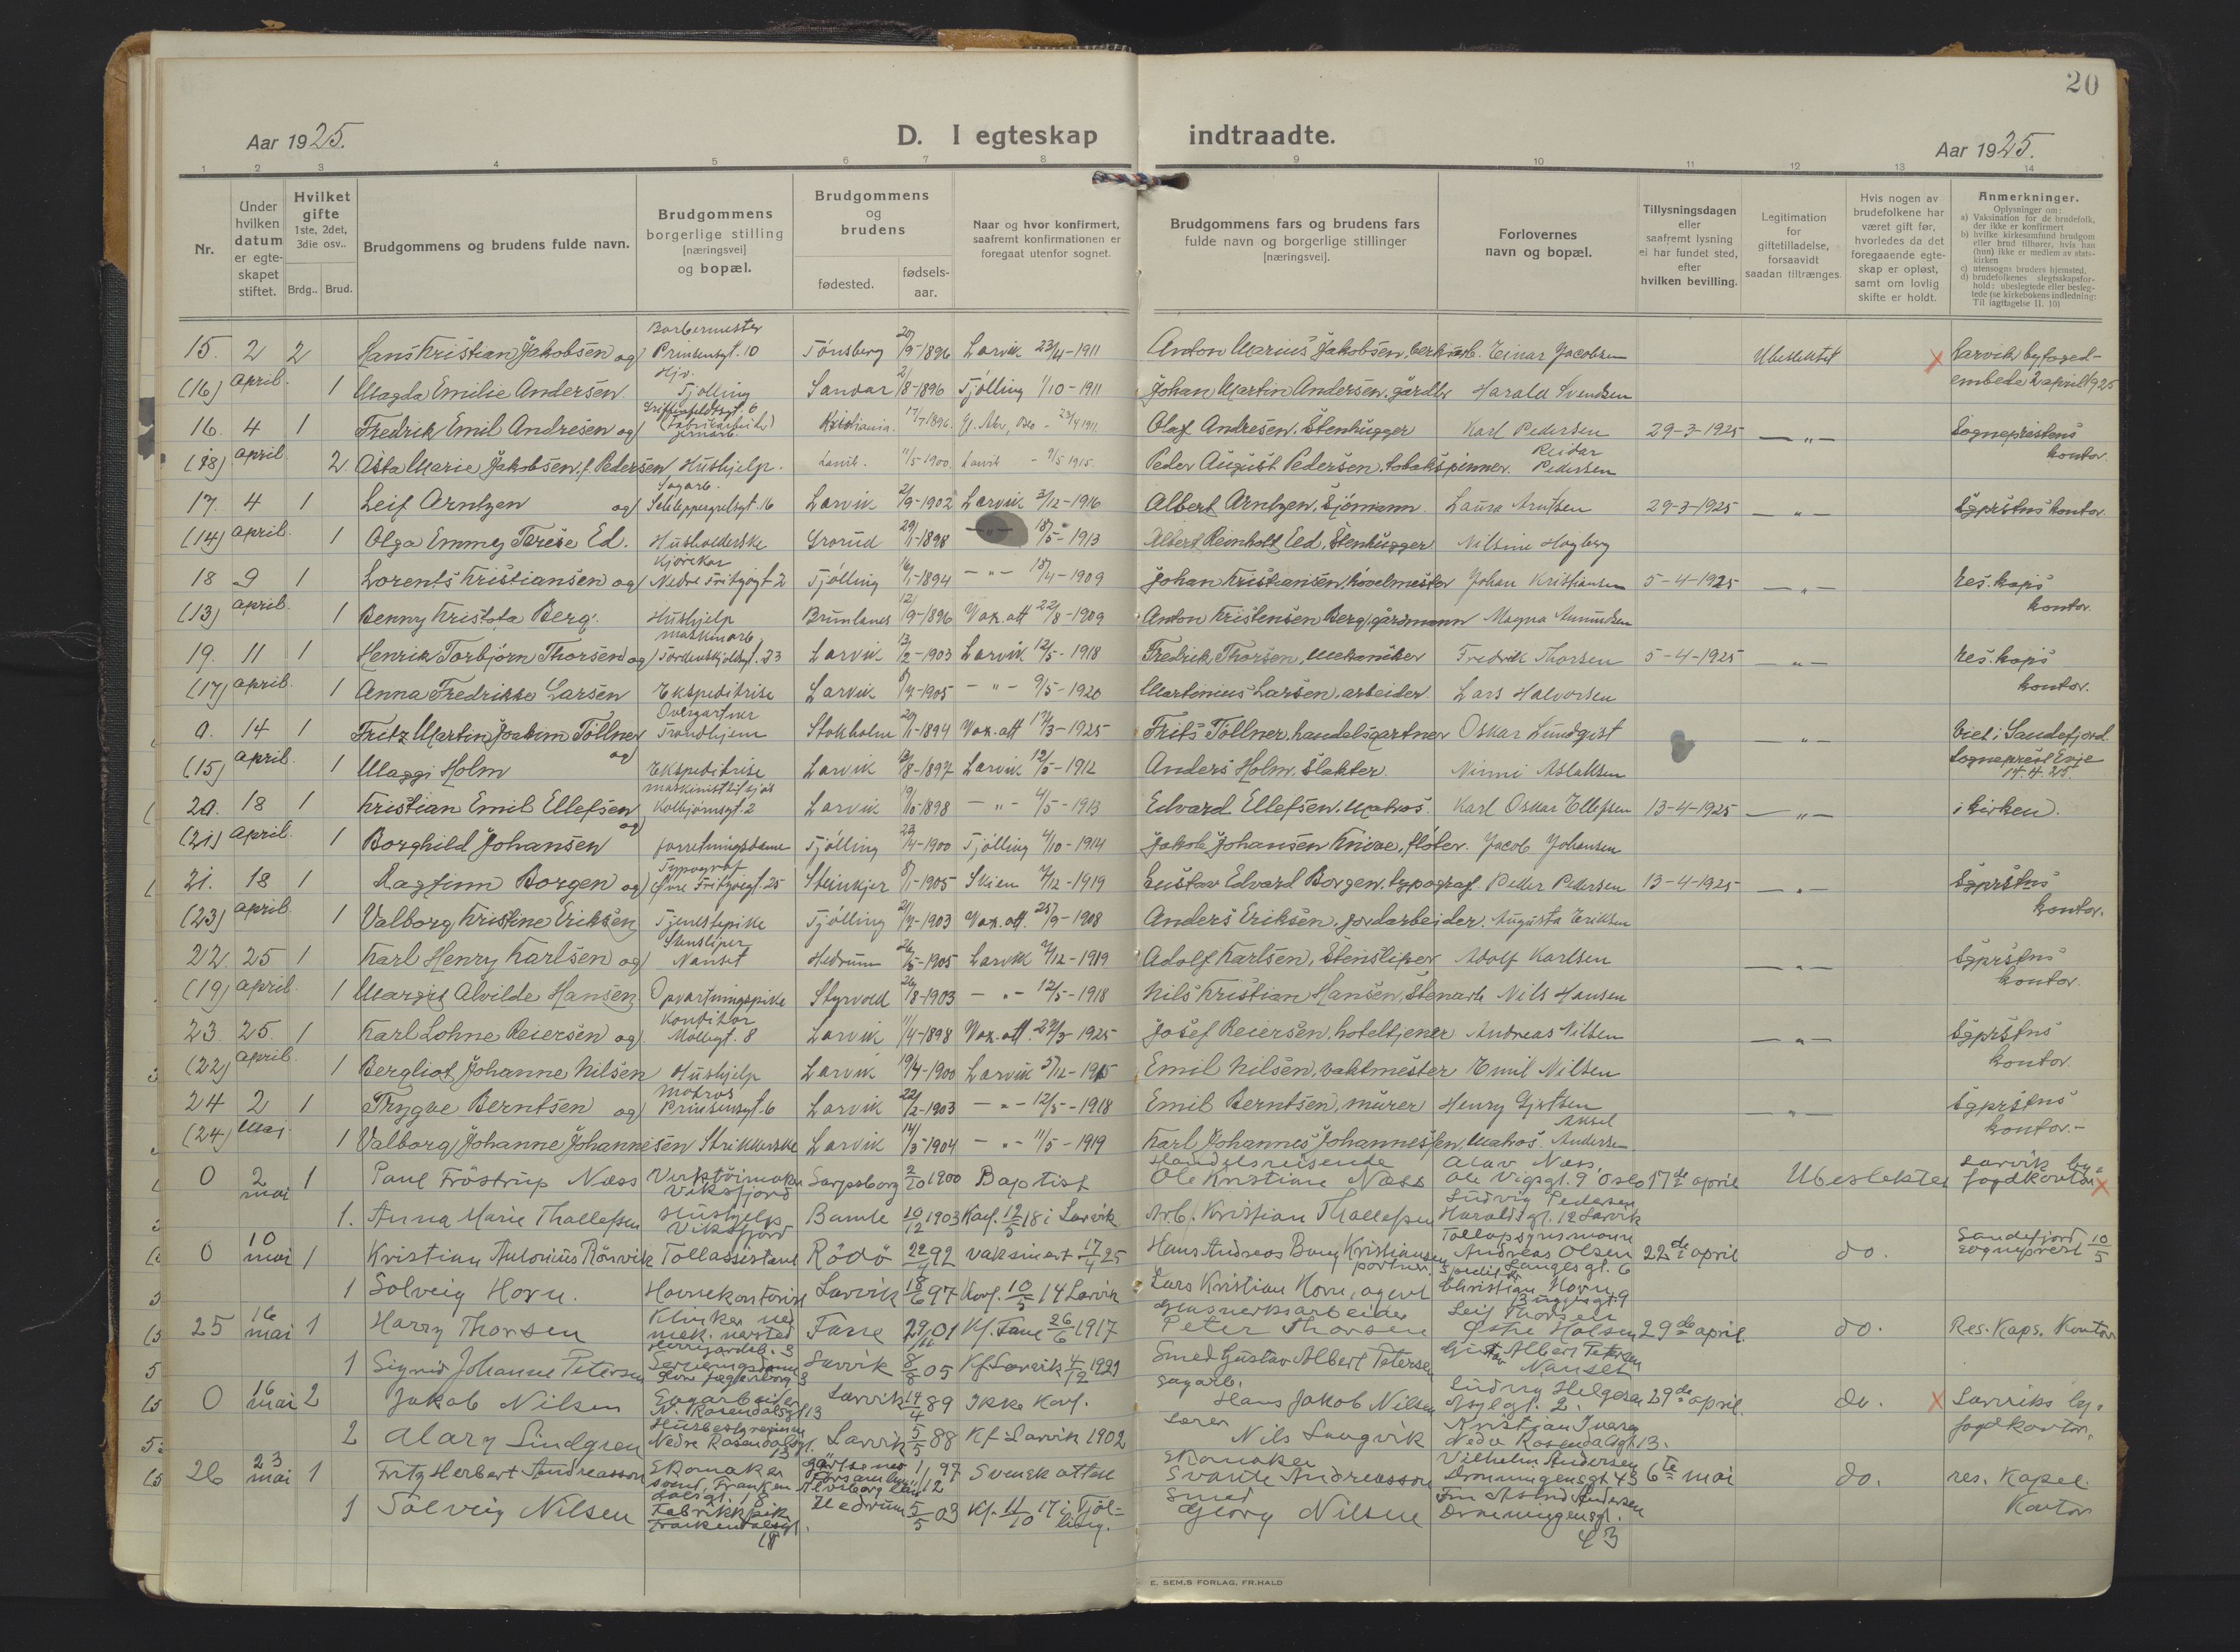 20
Aar 1925.
D. I egteskap indtraadte.
Aar 1925.
1 2 3 4 5 6 7 8 9 10 11 12 13 14
Nr.
Under hvilken datum er egte-skapet stiftet.
Hvilket gifte 1ste, 2det, 3die osv..
Brdg.. Brud.
Brudgommens og brudens fulde navn.
Brudgommens borgerlige stilling [næringsvei] og bopæl.
Brudgommens og brudens
fødested. fødsels-aar.
Naar og hvor konfirmert, saafremt konfirmationen er foregaat utenfor sognet.
Brudgommens fars og brudens fars fulde navn og borgerlige stillinger [næringsvei].
Forlovernes navn og bopæl.
Tillysningsdagen eller saafremt lysning ei har fundet sted, efter hvilken bevilling.
Legitimation for giftetilladelse, forsaavidt saadan tiltrænges.
Hvis nogen av brudefolkene har været gift før, hvorledes da det foregaaende egte-skap er opløst, samt om lovlig skifte er holdt.
Anmerkninger.
Oplysninger om:
a) Vaksination for de brudefolk, der ikke er konfirmert
b) hvilke kirkesamfund brudgom eller brud tilhører, hvis han (hun) ikke er medlem av stats-kirken
c) utensogns bruders hjemsted.
d) brudefolkenes slegtsskapsfor-hold: ubeslegtede eller besleg-tede (se kirkebokens indledning: Til iagttagelse II. 10)
15. 2 2 Hans Kristian Jakobsen og Barbermester Prinsensgt. 10 Tönsberg 20/9-1896 Larvik 23/4-1911 Anton Marius Jakobsen, Einar Jacobsen Ubeslektet x Larvik byfoged-
(16) april. 1 Magda Emilie Andersen. Hjv. Tjølling Sandar 2/8-1896 Tjölling 1/10-1911 Johan Martin Andersen, gårdbr Harald Svendsen embede 2 april 1925
16. 4 1 Fredrik Emil Andresen og Griffenfeldtsgt. 6 (Fabrikarbeider) Kristiania. 17/7 1896. Oslo - 23/4 1911 Olaf Andresen. Stenhugger Karl Pedersen 29-3-1925 — „ — Sogneprestens
(18) april 2 Asta Marie Jakobsen, f. Pedersen Hushjelp. Larvik. 11/5-1900. Larvik - 9/5 1915. Peder August Pedersen, tobakspinner. Reidar Pedersen kontor.
17. 4 1 Leif Arntzen og Sagarb. Larvik 2/9-1902 Larvik 3/12-1916 Albert Arntzen, Sjömann. Laura Arntsen 29-3-1925 — „ — Sgprstns kontor.
(14) april. 1 Olga Emmy Terese Ed. Husholderske Grorud 29/1-1898 — „ — 18/5-1913 Albert Reinholt Ed, Stenhugger Nilsine Hogberg
18 9 1 Lorents Kristiansen og Kjörekar Nedre Fritzøgt. 2 Tjölling 16/1-1894 — „ — 18/4-1909 Johan Kristiansen, hövelmester Johan Kristiansen 5-4-1925 — „ — Res. kaps
(13) april. 1 Benny Kristofa Berg. Hushjelp Brunlanes 12/9-1896 Vax. att 22/8-1909 Anton Kristensen Berg, gårdmann Magna Amundsen kontor.
19. 11 1 Henrik Torbjörn Thorsen og maskinarb. Tordenskjoldsgt. 23 Larvik 13/2-1903 Larvik 12/5-1918 Fredrik Thorsen, Mekaniker Fredrik Thorsen 5-4-1925 — „ — Res. kaps
(17) april. 1 Anna Fredrikke Larsen Ekspeditrise Larvik 8/7-1905 — „ — 9/5-1920 Martinius Larsen, arbeider. Lars Halvorsen kontor.
0. 14 1 Fritz Martin Joakim Töllner og Overgartner Trondhjem Stokholm 29/1-1894 Vax. att 17/3-1925 Frits Töllner, handelsgartner Oskar Lundqist — „ — Viet i Sandefjord.
(15) april. 1 Maggi Holm Ekspeditrise Larvik 13/8-1897 Larvik 12/5-1912 Anders Holm, Slakter. Ninni Aslaksen Sogneprest Evje 14.4.25
20. 18 1 Kristian Emil Ellefsen og maskinist til sjös Kolbjörnsgt. 2 Larvik 19/10-1898 — „ — 4/5-1913 Edvard Ellefsen, Matros. Karl Oskar Ellefsen 13-4-1925 — „ — i kirken.
(21) april. 1 Borghild Johansen forretningsdame Tjölling 22/4-1900 Tjölling 4/10-1914 Jakob Johansen Knive, flöter. Jacob Johansen
21. 18 1 Dagfinn Borgen og Typograf Övre Fritzøegt. 25 Steinkjer 8/1-1905 Skien 7/12-1919 Gustav Edvard Borgen, typograf. Peder Pedersen 13-4-1925 — „ — Sgprstns
(23) april 1 Valborg Kristine Eriksen Tjenestepike Tjölling 21/7-1903 Vax. att. 25/9-1908 Anders Eriksen, jordarbeider. Augusta Eriksen kontor.
22. 25 1 Karl Henry Karlsen og Stensliper Nanset Hedrum 26/5-1905 Larvik 7/12-1919 Adolf Karlsen, Stensliper Adolf Karlsen — „ — Sgprstns
(19) april. 1 Margit Alvilde Hansen Opvartningspike Styrvold 26/8-1903 — „ — 12/5-1918 Nils Kristian Hansen, Stenarb. Nils Hansen kontor.
23. 25. 1 Karl Lohne Reiersen og Konditor Möllegt. 8 Larvik 11/4-1898 Vax. att. 27/3-1925 Josef Reiersen, hoteltjener Andreas Nilsen — „ — Sgprstns
(22) april. 1 Bergliot Johanne Nilsen Hushjelp Larvik 19/4-1900 Larvik 5/12-1915 Emil Nilsen, vaktmester Emil Nilsen kontor.
24 2 1 Trygve Berntsen og Matros Prinsensgt. 6 Larvik 22/2-1903 — „ — 12/5-1918 Emil Berntsen, murer Henry Gjertsen — „ — Sgprstns
(24) Mai 1 Valborg Johanne Johannesen Strikkerske Larvik 14/3 1904 — „ — 11/5-1919 Karl Johannes Johannessen, Matros. Aksel Andersen kontor.-
0 2 mai 1 Paul Fröstrup Næss Verktöimaker Viksfjord Sarpsborg 2/10 1900 Baptist Handelsreisende Ole Kristian Næss Olav Næss, Ole Vigsgt. 9 Oslo 17de april Ubeslektet Larvik by-fogdkontor x
1. Anna Marie Thallefsen Hushjelp Viksfjord Bamle 10/12 1903 Konf. 12/5 18 i Larvik Arb. Kristian Thallefsen Ludvig Pedersen Haraldsgt. 12 Larvik
0 10 mai 1 Kristian Antonius Rönvik Tollassistent Rödö 22/4 92 vaksinert 17/4 25 Hans Andreas Bang Kristiansen portner. Tollopsynsmann Andreas Olsen Langesgt. 6 22de april do. Sandefjord sogneprest 10/5
1 Solveig Horn. Havnekontorist Larvik 18/6 97 Konf. 10/5 14 Larvik Lars Kristian Horn, agent Speditör Christian Horn, 9
25 16 mai 1 Harry Thorsen Klinker ved mek. verksted Herregårdsb. 3 Fane 29/11 01 Kf. Fane 26/6 1917 Glasverksarbeider Peter Thorsen Leif Thorsen Östre Halsen 29de april. do. Res. Kaps. Kontor
1 Signe Johanne Petersen Serveringsdame Larvik 8/8 05 Kf Larvik 4/12 1921 Smed Gustav Albert Petersen Gustav Albert Petersen Nanset
0 16 mai 2 Jakob Nilsen Sagarbeider N. Rosendalsgt 13 Larvik 14/4 89 Ikke Konf. Sagarb. Hans Jakob Nilsen Ludvig Helgesen Asylgt. 2. 29de april. do. x Larviks by-
2 Mary Lindgren Husbestyrerinne Nedre Rosendalsgt. 13 Larvik 5/5 88 Kf Larvik 1902 Lærer Nils Langvik Kristian Nedre Rosendalsgt. 13. fogdkontor.
26 23 mai 1 Fritz Herbert Andreasson Skomaker 1/12 97 Svensk attest Skomaker Svante Andreasson Vilhelm Andersen Dronningensgt 43 6te mai do. res. Kapel.
1 Solveig Nilsen Fabrikkpike Frankendalsgt. 18 Hedrum 5/5 03 Kf. 11/10 17 i Tjöl-ling. Smed Georg Nilsen Fru Astrid Andersen Dronningensgt. 43 Kontor
E. SEM,S FORLAG, FR.HALD